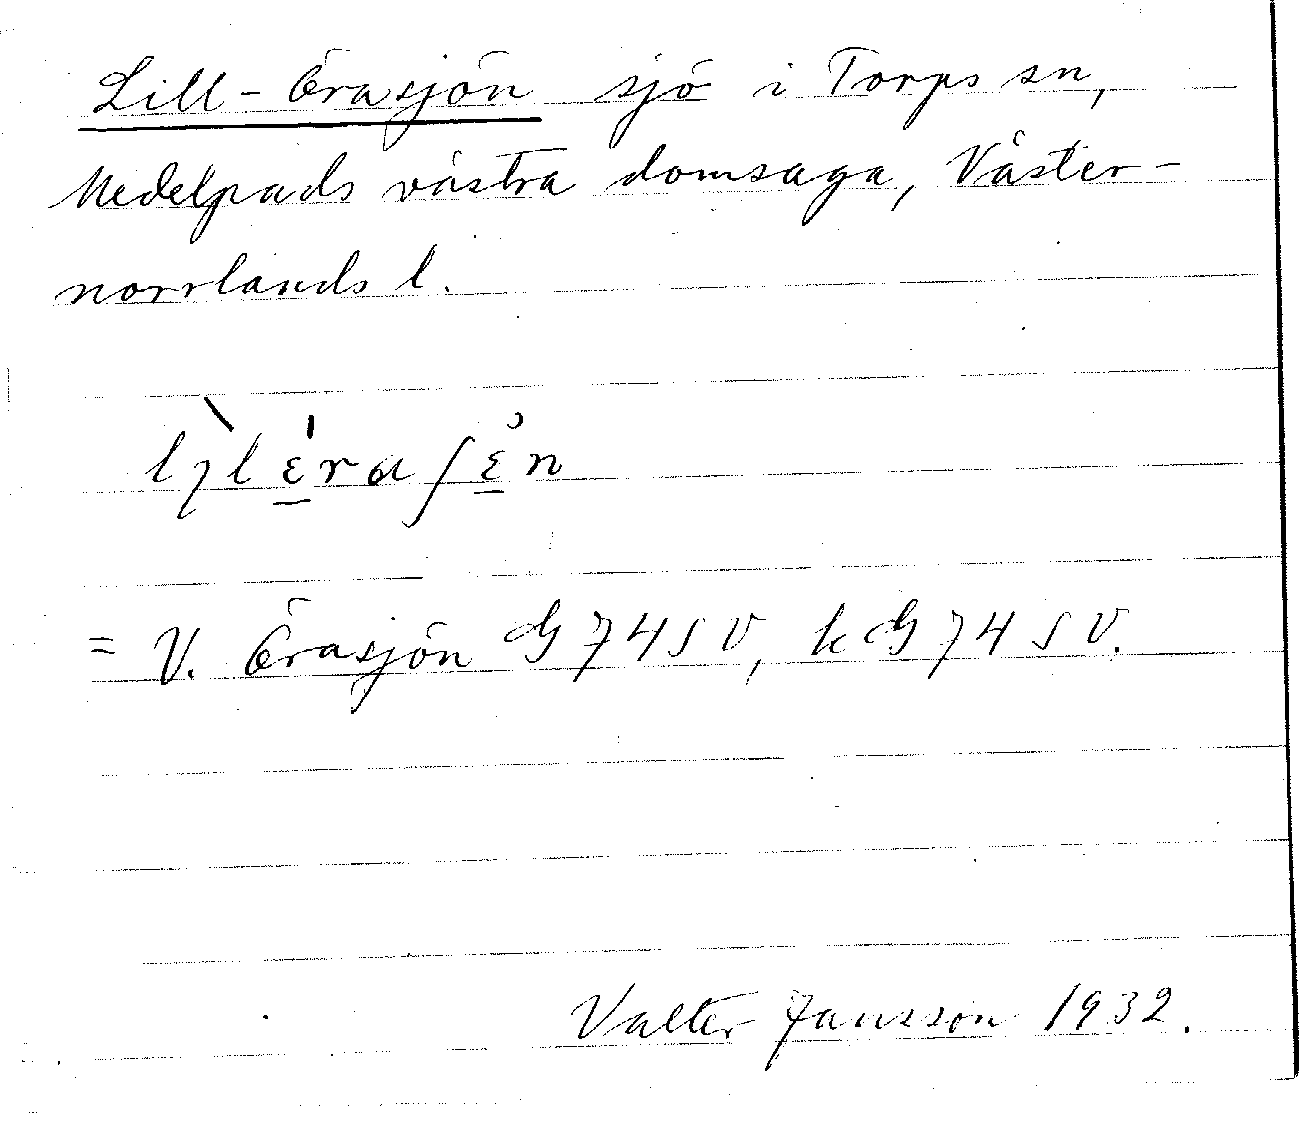 Lill-Örasjön sjö i Torps sn,
Medelpads västra domsaga, Väster-
norrlands l.
= V. Örasjön G 74 SV, k G 74 SV.
Valter Jansson 1932.